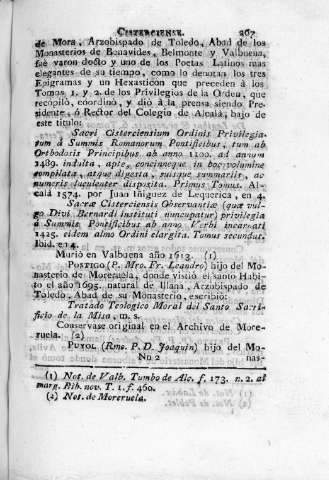 CISTERCIENSE. 267
de Mora, Arzobispado de Toledo, Abad de los
Monasterios de Benavides, Belmonte y Valbuena,
fué varon docto y uno de los Poetas Latinos mas
elegantes de su tiempo, como lo denotan los tres
Epigramas y un Hexasticon que preceden á los
Tomos 1. y 2. de los Privilegios de la Orden, que
recopiló, coordinó, y dió á la prensa siendo Pre-
sidente, ó Rector del Colegio de Alcalá, bajo de
este titulo:
Sacri Cisterciensium Ordinis Privilegia-
rum à Summis Romanorum Pontificibus, tum ab
Orthodoxis Principibus ab anno 1100. ad annum
1489. indulta, apte, concinneque in hoc volumine
compilata, atque digesta, suisque summariis, ac
numeris luculenter disposita. Primus Tomus. Al-
calá 1574. por Juan Iñiguez de Lequerica, en 4.
Sacræ Cisterciensis Observantiæ (quæ vul-
go Divi Bernardi instituti nuncupatur) privilegia
à Summis Pontificibus ab anno Verbi incarnati
1425. eidem almo Ordini elargita. Tomus secundus.
Ibid. en 4.
Murió en Valbuena año 1613. (1)
POSTIGO (P. Mro. Fr. Leandro) hijo del Mo-
nasterio de Moreruela, donde vistió el santo Habi-
to el año 1695. natural de Illana, Arzobispado de
Toledo, Abad de su Monasterio, escribió:
Tratado Teologico Moral del Santo Sacri-
ficio de la Misa, m. s.
Conservase original en el Archivo de More-
ruela. (2)
PUYOL (Rmo. P. D. Joaquin) hijo del Mo-
Nn 2 nas-
(1) Not. de Valb. Tumbo de Alc. f. 173. n. 2. al
marg. Bib. nov. T. 1. f. 460.
(2) Not. de Moreruela.